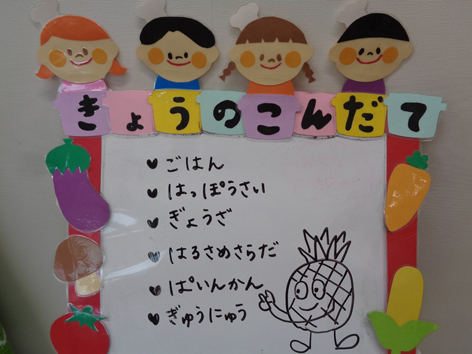 きょうのこんだて
♥ ごはん
♥ はっぽうさい
♥ ぎょうざ
♥ はるさめさらだ
♥ ぱいんかん
♥ ぎゅうにゅう